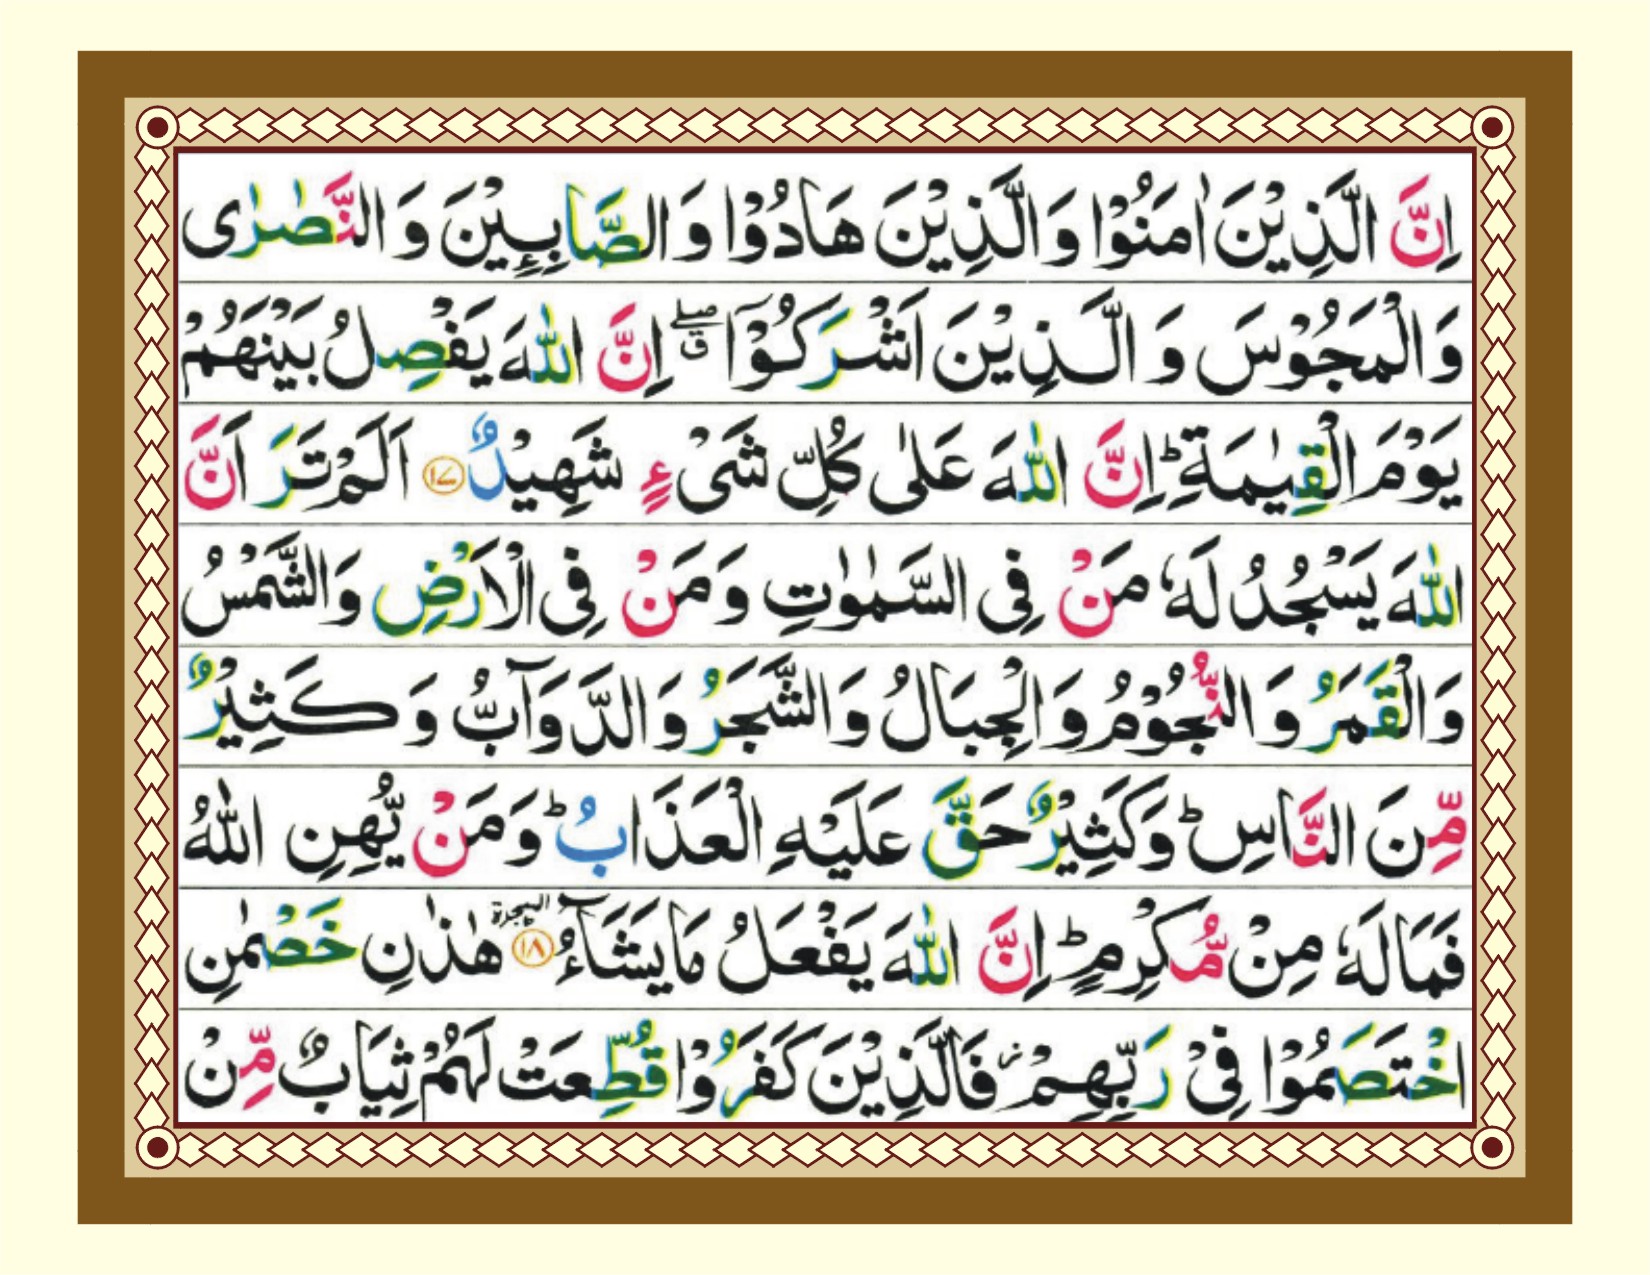 اِنَّ الَّذِيْنَ اٰمَنُوْا وَالَّذِيْنَ هَادُوْا وَالصَّابِـِٕيْنَ وَالنَّصٰرٰى
وَالْمَجُوْسَ وَالَّذِيْنَ اَشْرَكُوْۤا ۖۗ اِنَّ اللّٰهَ يَفْصِلُ بَيْنَهُمْ
يَوْمَ الْقِيٰمَةِ ؕ اِنَّ اللّٰهَ عَلٰى كُلِّ شَىْءٍ شَهِيْدٌ ﴿۱۷﴾ اَلَمْ تَرَ اَنَّ
اللّٰهَ يَسْجُدُ لَهٗ مَنْ فِى السَّمٰوٰتِ وَمَنْ فِى الْاَرْضِ وَالشَّمْسُ
وَالْقَمَرُ وَالنُّجُوْمُ وَالْجِبَالُ وَالشَّجَرُ وَالدَّوَآبُّ وَكَثِيْرٌ
مِّنَ النَّاسِ ؕ وَكَثِيْرٌ حَقَّ عَلَيْهِ الْعَذَابُ ؕ وَمَنْ يُّهِنِ اللّٰهُ
فَمَا لَهٗ مِنْ مُّكْرِمٍ ؕ اِنَّ اللّٰهَ يَفْعَلُ مَا يَشَآءُ ﴿۱۸﴾ السجدة هٰذٰنِ خَصْمٰنِ
اخْتَصَمُوْا فِىْ رَبِّهِمْ ز فَالَّذِيْنَ كَفَرُوْا قُطِّعَتْ لَهُمْ ثِيَابٌ مِّنْ